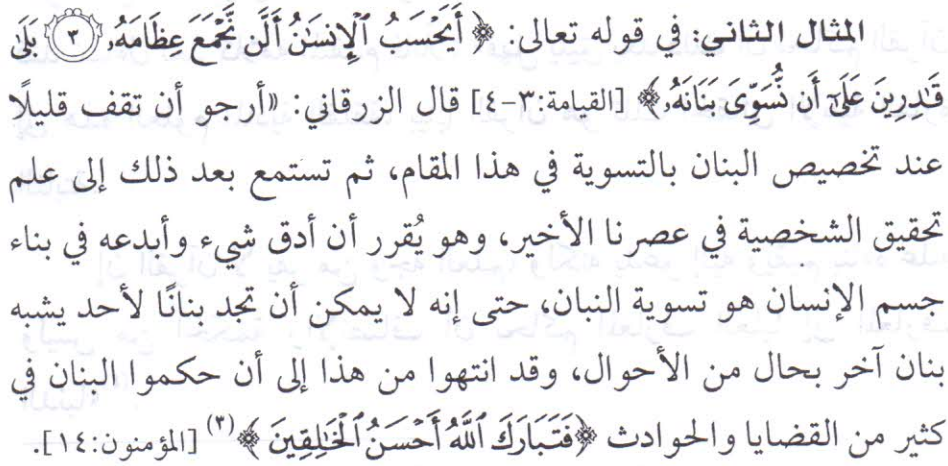 المثال الثاني: في قوله تعالى: ﴿أَيَحْسَبُ ٱلْإِنسَٰنُ أَلَّن نَّجْمَعَ عِظَامَهُۥ ۝٣ بَلَىٰ
قَٰدِرِينَ عَلَىٰٓ أَن نُّسَوِّىَ بَنَانَهُۥ﴾ [القيامة:٣-٤] قال الزرقاني: «أرجو أن تقف قليلًا
عند تخصيص البنان بالتسوية في هذا المقام، ثم تستمع بعد ذلك إلى علم
تحقيق الشخصية في عصرنا الأخير، وهو يُقرر أن أدق شيء وأبدعه في بناء
جسم الإنسان هو تسوية النبان، حتى إنه لا يمكن أن تجد بنانًا لأحد يشبه
بنان آخر بحال من الأحوال، وقد انتهوا من هذا إلى أن حكموا البنان في
كثير من القضايا والحوادث ﴿فَتَبَارَكَ ٱللَّهُ أَحْسَنُ ٱلْخَٰلِقِينَ﴾(٣) [المؤمنون:١٤].